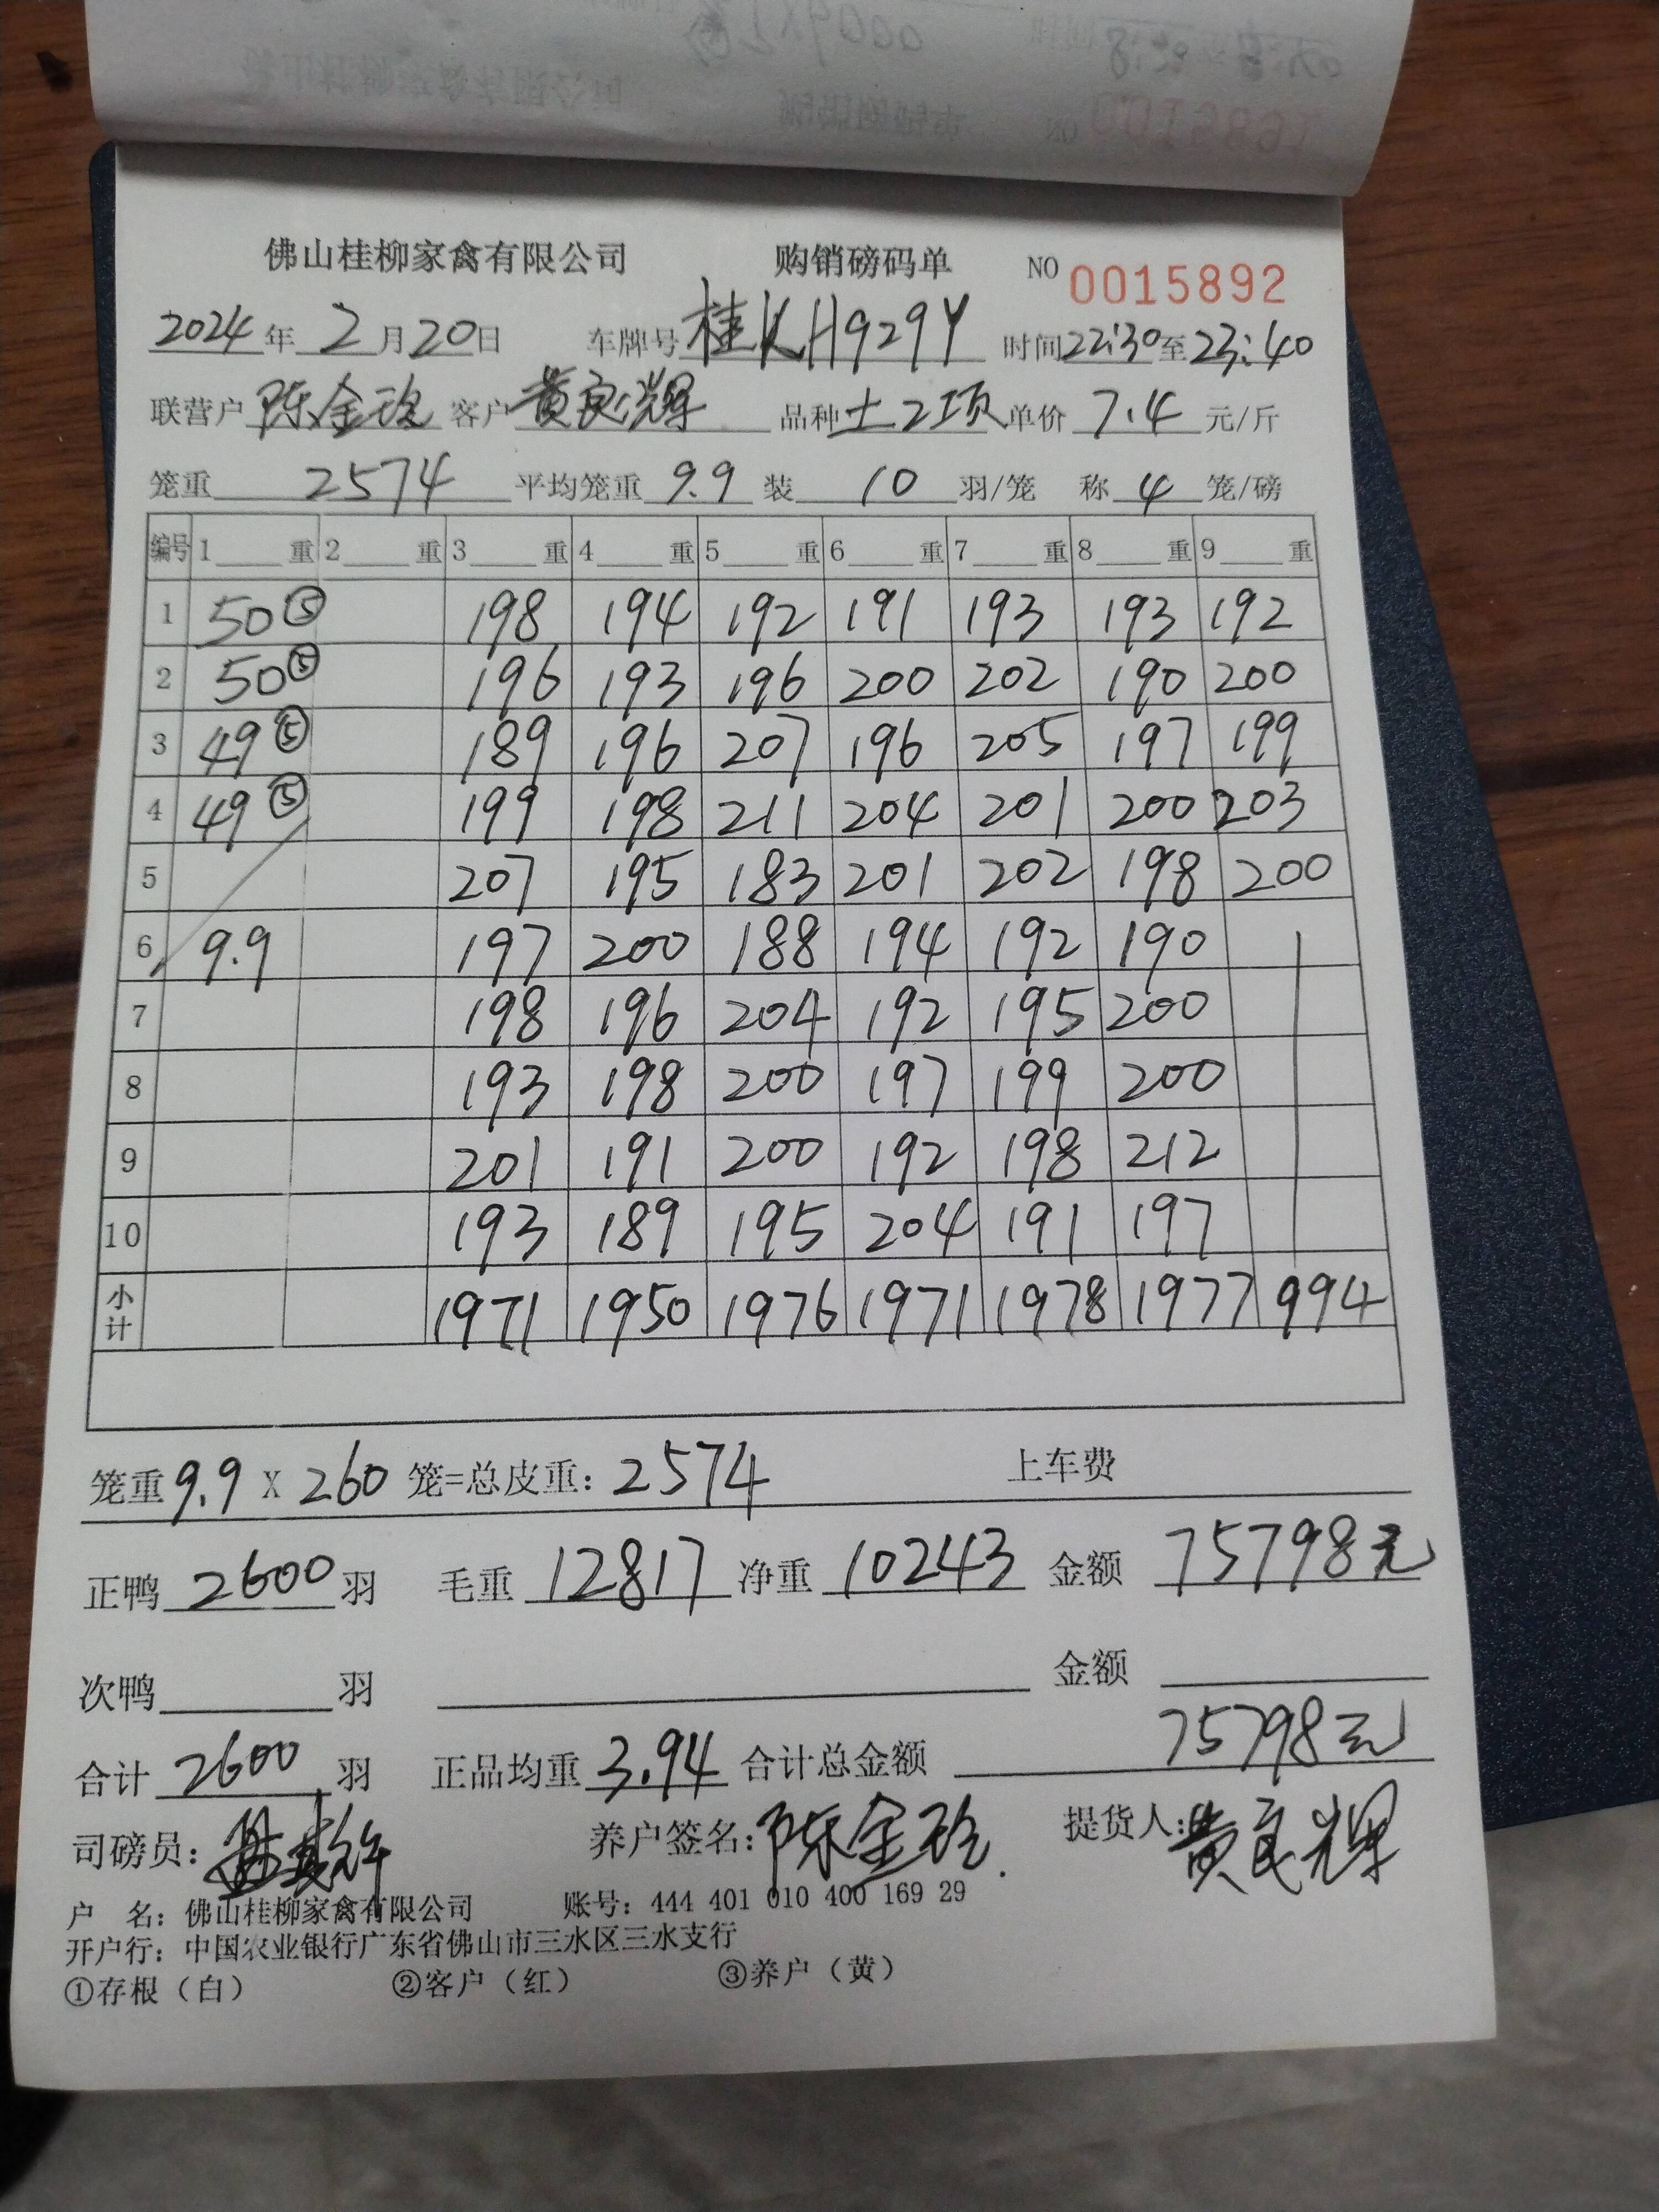 佛山桂柳家禽有限公司 购销磅码单 NO 0015892
2024年2月20日 车牌号 桂KH929Y 时间22:30至23:40
联营户 陈金玲 客户 黄良辉 品种 土2项 单价 7.4 元/斤
笼重 2574 平均笼重 9.9 装 10 羽/笼 称 4 笼/磅
编号 1 重 2 重 3 重 4 重 5 重 6 重 7 重 8 重 9 重
1 50⑤ 198 194 192 191 193 193 192
2 50⑤ 196 193 196 200 202 190 200
3 49⑤ 189 196 207 196 205 197 199
4 49⑤ 199 198 211 204 201 200 203
5 207 195 183 201 202 198 200
6 9.9 197 200 188 194 192 190
7 198 196 204 192 195 200
8 193 198 200 197 199 200
9 201 191 200 192 198 212
10 193 189 195 204 191 197
小计 1971 1950 1976 1971 1978 1977 994
笼重 9.9 X 260 笼=总皮重: 2574 上车费
正鸭 2600 羽 毛重 12817 净重 10243 金额 75798元
次鸭 羽 金额
合计 2600 羽 正品均重 3.94 合计总金额 75798元
司磅员: 养户签名: 陈金玲 提货人: 黄良辉
户 名: 佛山桂柳家禽有限公司 账号: 444 401 010 400 169 29
开户行: 中国农业银行广东省佛山市三水区三水支行
①存根（白） ②客户（红） ③养户（黄）